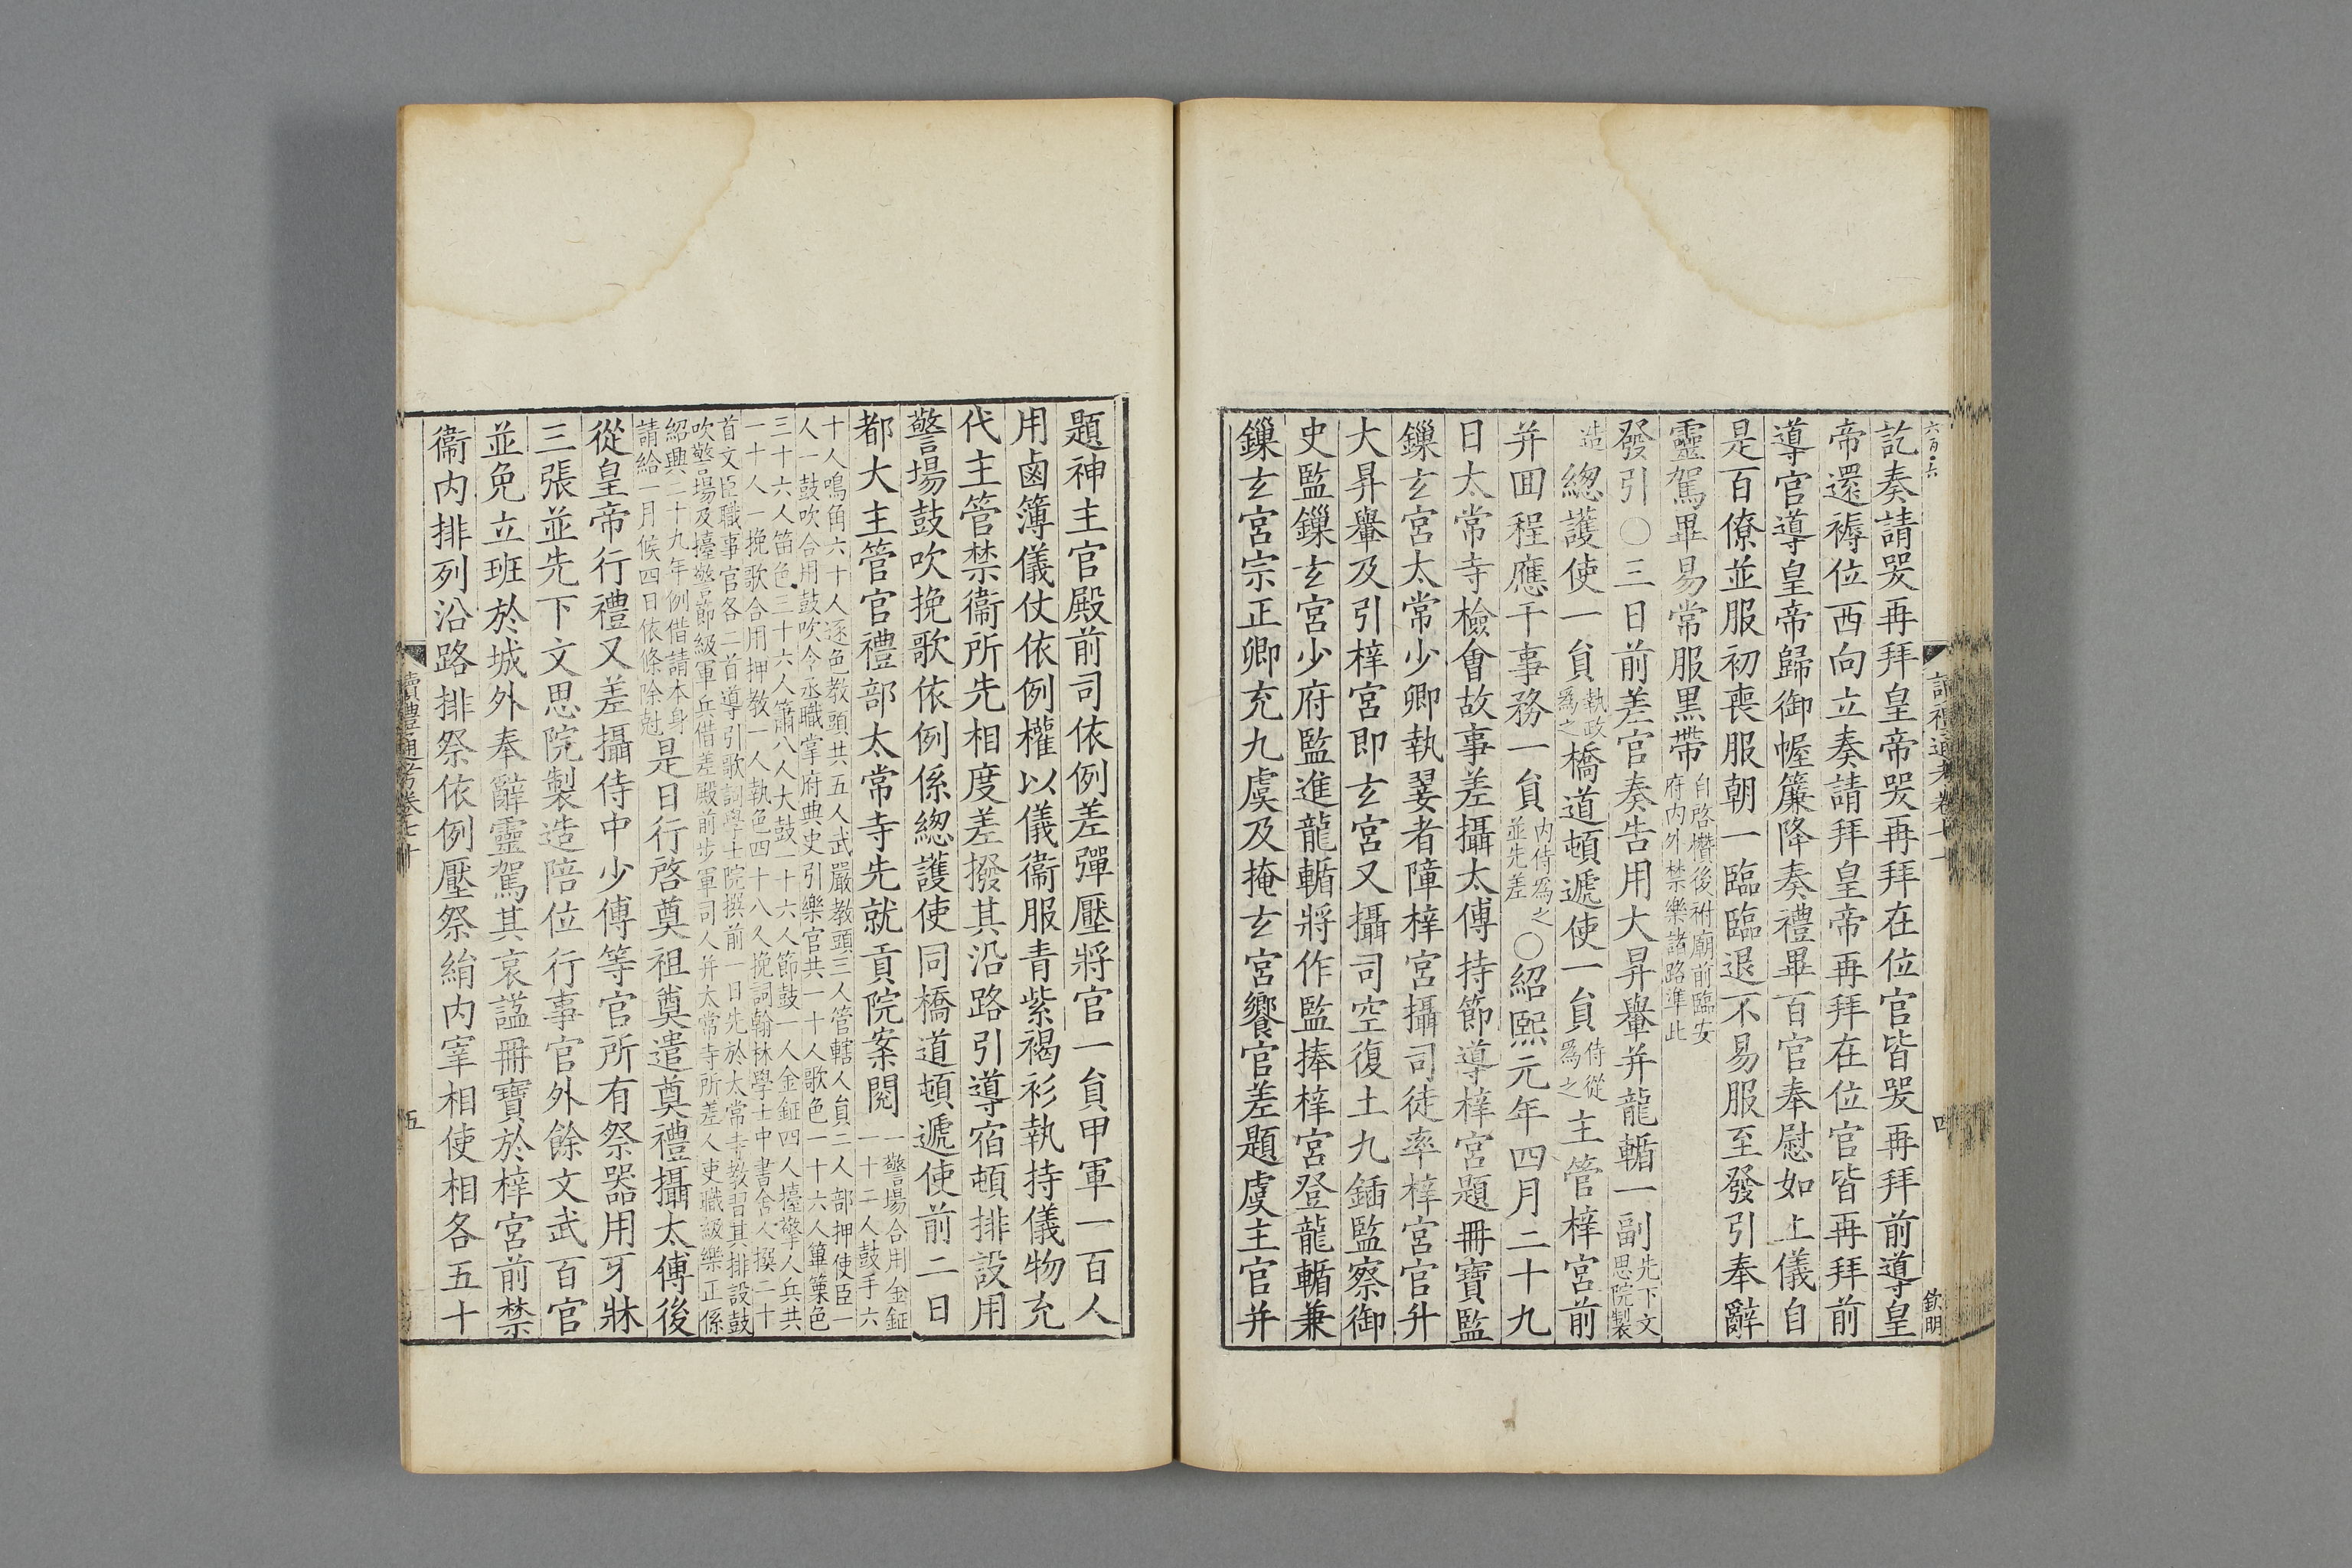 訖奏請哭再拜皇帝哭再拜在位官皆哭再拜前導皇
帝還褥位西向立奏請拜皇帝再拜在位官皆再拜前
導官導皇帝歸御幄簾降奏禮畢百官奉慰如上儀自
是百僚並服初喪服朝一臨臨退不易服至發引奉辭
靈駕畢易常服黑帶自啓欑後祔廟前臨安府内外禁樂諸路準此
發引○三日前差官奏告用大昇轝并龍輴一副先下文思院製
造總護使一員執政爲之橋道頓遞使一員侍從爲之主管梓宮前
并回程應干事務一員内侍爲之並先差○紹熙元年四月二十九
日太常寺檢會故事差攝太傅持節導梓宮題冊寶監
鏁玄宮太常少卿執翣者障梓宮攝司徒率梓宮官升
大昇轝及引梓宮即玄宮又攝司空復土九鍤監察御
史監鏁玄宮少府監進龍輴將作監捧梓宮登龍輴兼
鏁玄宮宗正卿充九虞及掩玄宮饗官差題虞主官并
題神主官殿前司依例差彈壓將官一員甲軍一百人
用鹵簿儀仗依例權以儀衞服青紫褐衫執持儀物充
代主管禁衞所先相度差撥其沿路引導宿頓排設用
警場鼓吹挽歌依例係總護使同橋道頓遞使前二日
都大主管官禮部太常寺先就貢院案閱一警場合用金鉦一十二人鼓手六
十人鳴角六十人逐色教頭共五人武嚴教頭三人管轄人員二人部押使臣一
人一鼓吹合用鼓吹令丞職掌府典史引樂官共一十人歌色一十六人篳篥色
三十六人笛色三十六人簫八人大鼓一十六人節鼓一人金鉦四人擡擎人兵共
一十人一挽歌合用押教一人執色四十八人挽詞翰林學士中書舍人撰二十
首文臣職事官各二首導引歌詞學士院撰前一日先於太常寺教習其排設鼓
吹警場及擡擎節級軍兵借差殿前步軍司人并太常寺所差人吏職級樂正係
紹興二十九年例借請本身
請給一月候四日依條除尅是日行啓奠祖奠遣奠禮攝太傅後
從皇帝行禮又差攝侍中少傅等官所有祭器用牙牀
三張並先下文思院製造陪位行事官外餘文武百官
並免立班於城外奉辭靈駕其哀謚冊寶於梓宮前禁
衞内排列沿路排祭依例壓祭絹内宰相使相各五十
讀禮通考卷七十
四
五
欽明